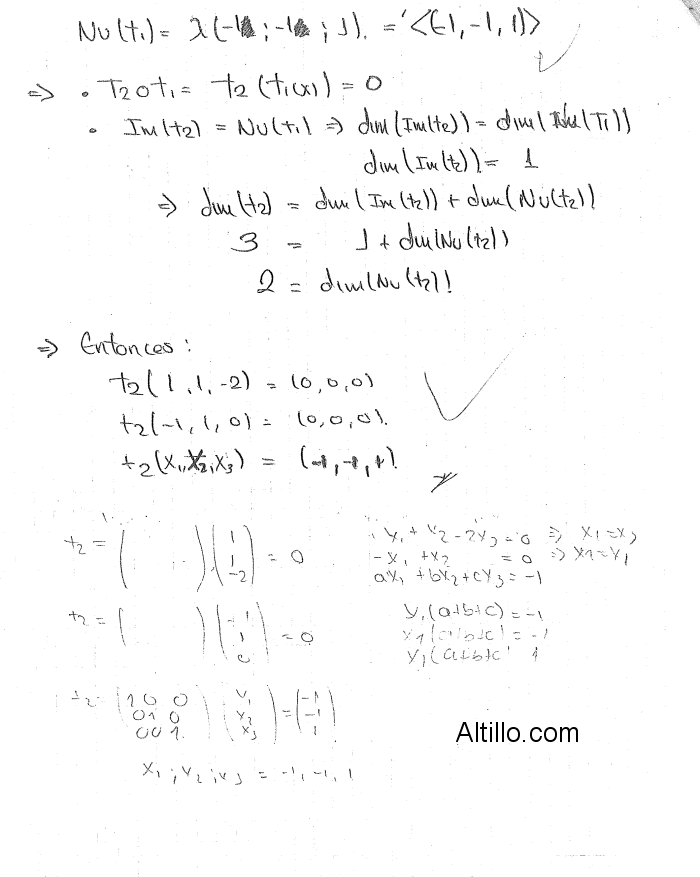 Nu(t₁) = λ(-1; -1; 1). = <(-1, -1, 1)>
⇒ • T₂ o t₁ = t₂(t₁(x)) = 0
• Im(t₂) = Nu(t₁) ⇒ dim(Im(t₂)) = dim(Nu(T₁))
dim(Im(t₂)) = 1
⇒ dim(t₂) = dim(Im(t₂)) + dim(Nu(t₂))
3 = 1 + dim(Nu(t₂))
2 = dim(Nu(t₂)!
⇒ Entonces:
t₂(1, 1, -2) = (0, 0, 0)
t₂(-1, 1, 0) = (0, 0, 0).
t₂(x₁, x₂, x₃) = (-1, -1, 1).
t₂ = ( ) ( 1 1 -2 ) = 0
x₁ + x₂ - 2x₃ = 0 ⇒ x₁ = x₃
-x₁ + x₂ = 0 ⇒
ax₁ + bx₂ + cx₃ = -1
t₂ = ( ) ( -1 1 0 ) = 0
x₁(a+b+c) = -1
x₁(a+b+c) = -1
x₁(a+b+c 1
t₂ (1 0 0
0 1 0
0 0 1) (x₁ x₂ x₃) = (-1 -1 1)
x₁; x₂; x₃ = -1, -1, 1
Altillo.com